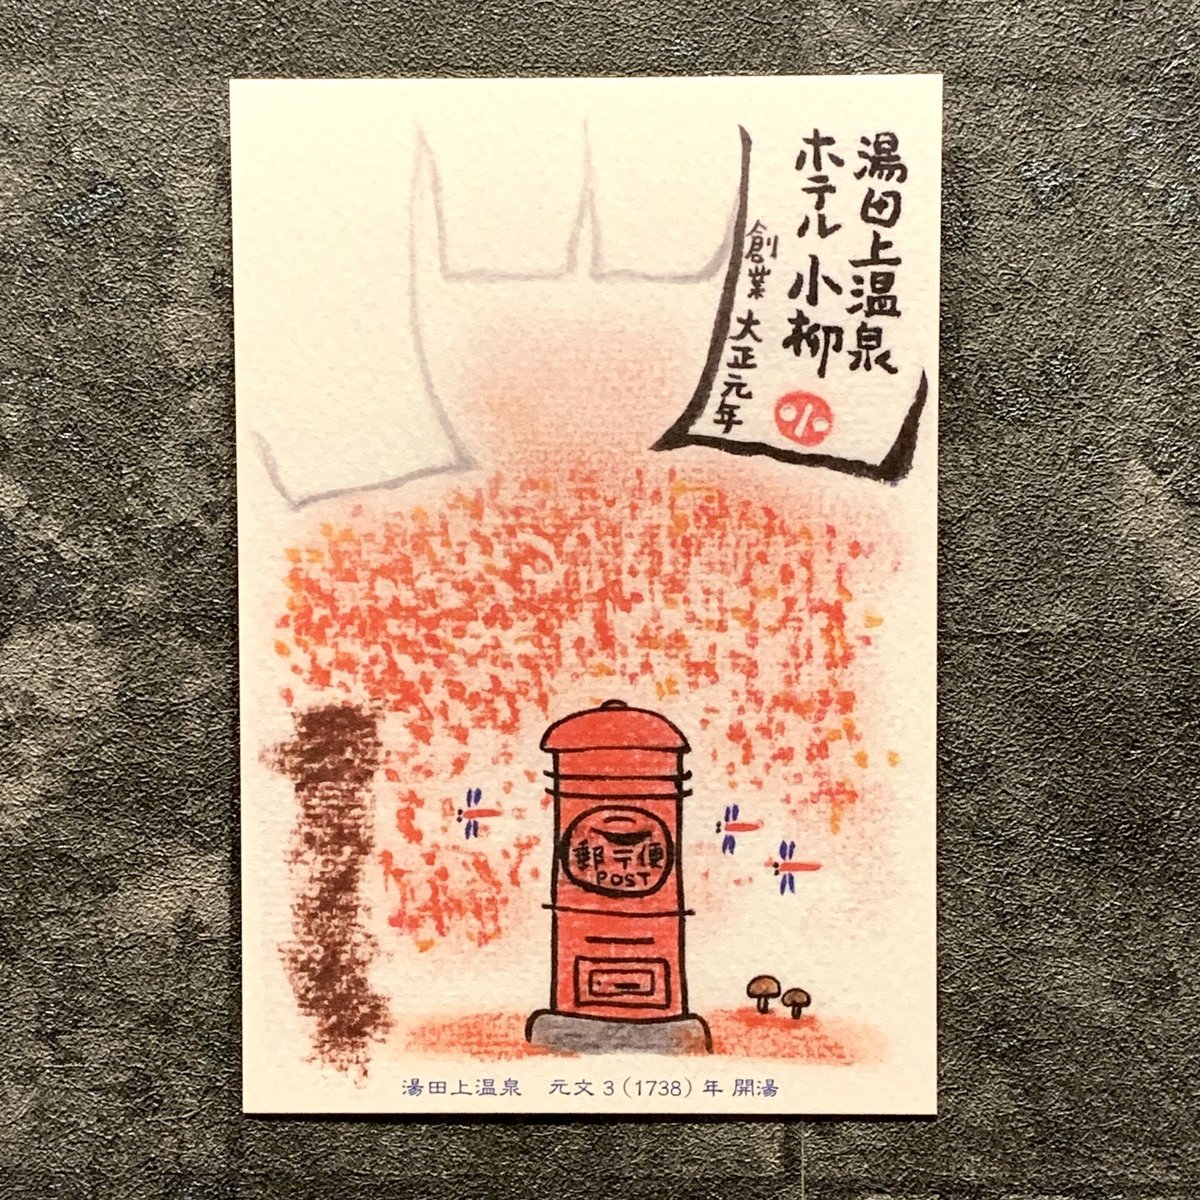 湯田上温泉
ホテル小柳
創業 大正元年
郵便
POST
湯田上温泉　元文3(1738)年 開湯